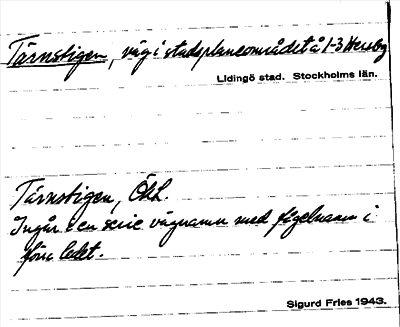 Tärnstigen, väg i stadsplaneområdet å 1-3 Hersby
Lidingö stad. Stockholms län.
Tärnstigen, Ökl.
Ingår i en serie vägnamn med fågelnamn i
förra ledet.
Sigurd Fries 1943.